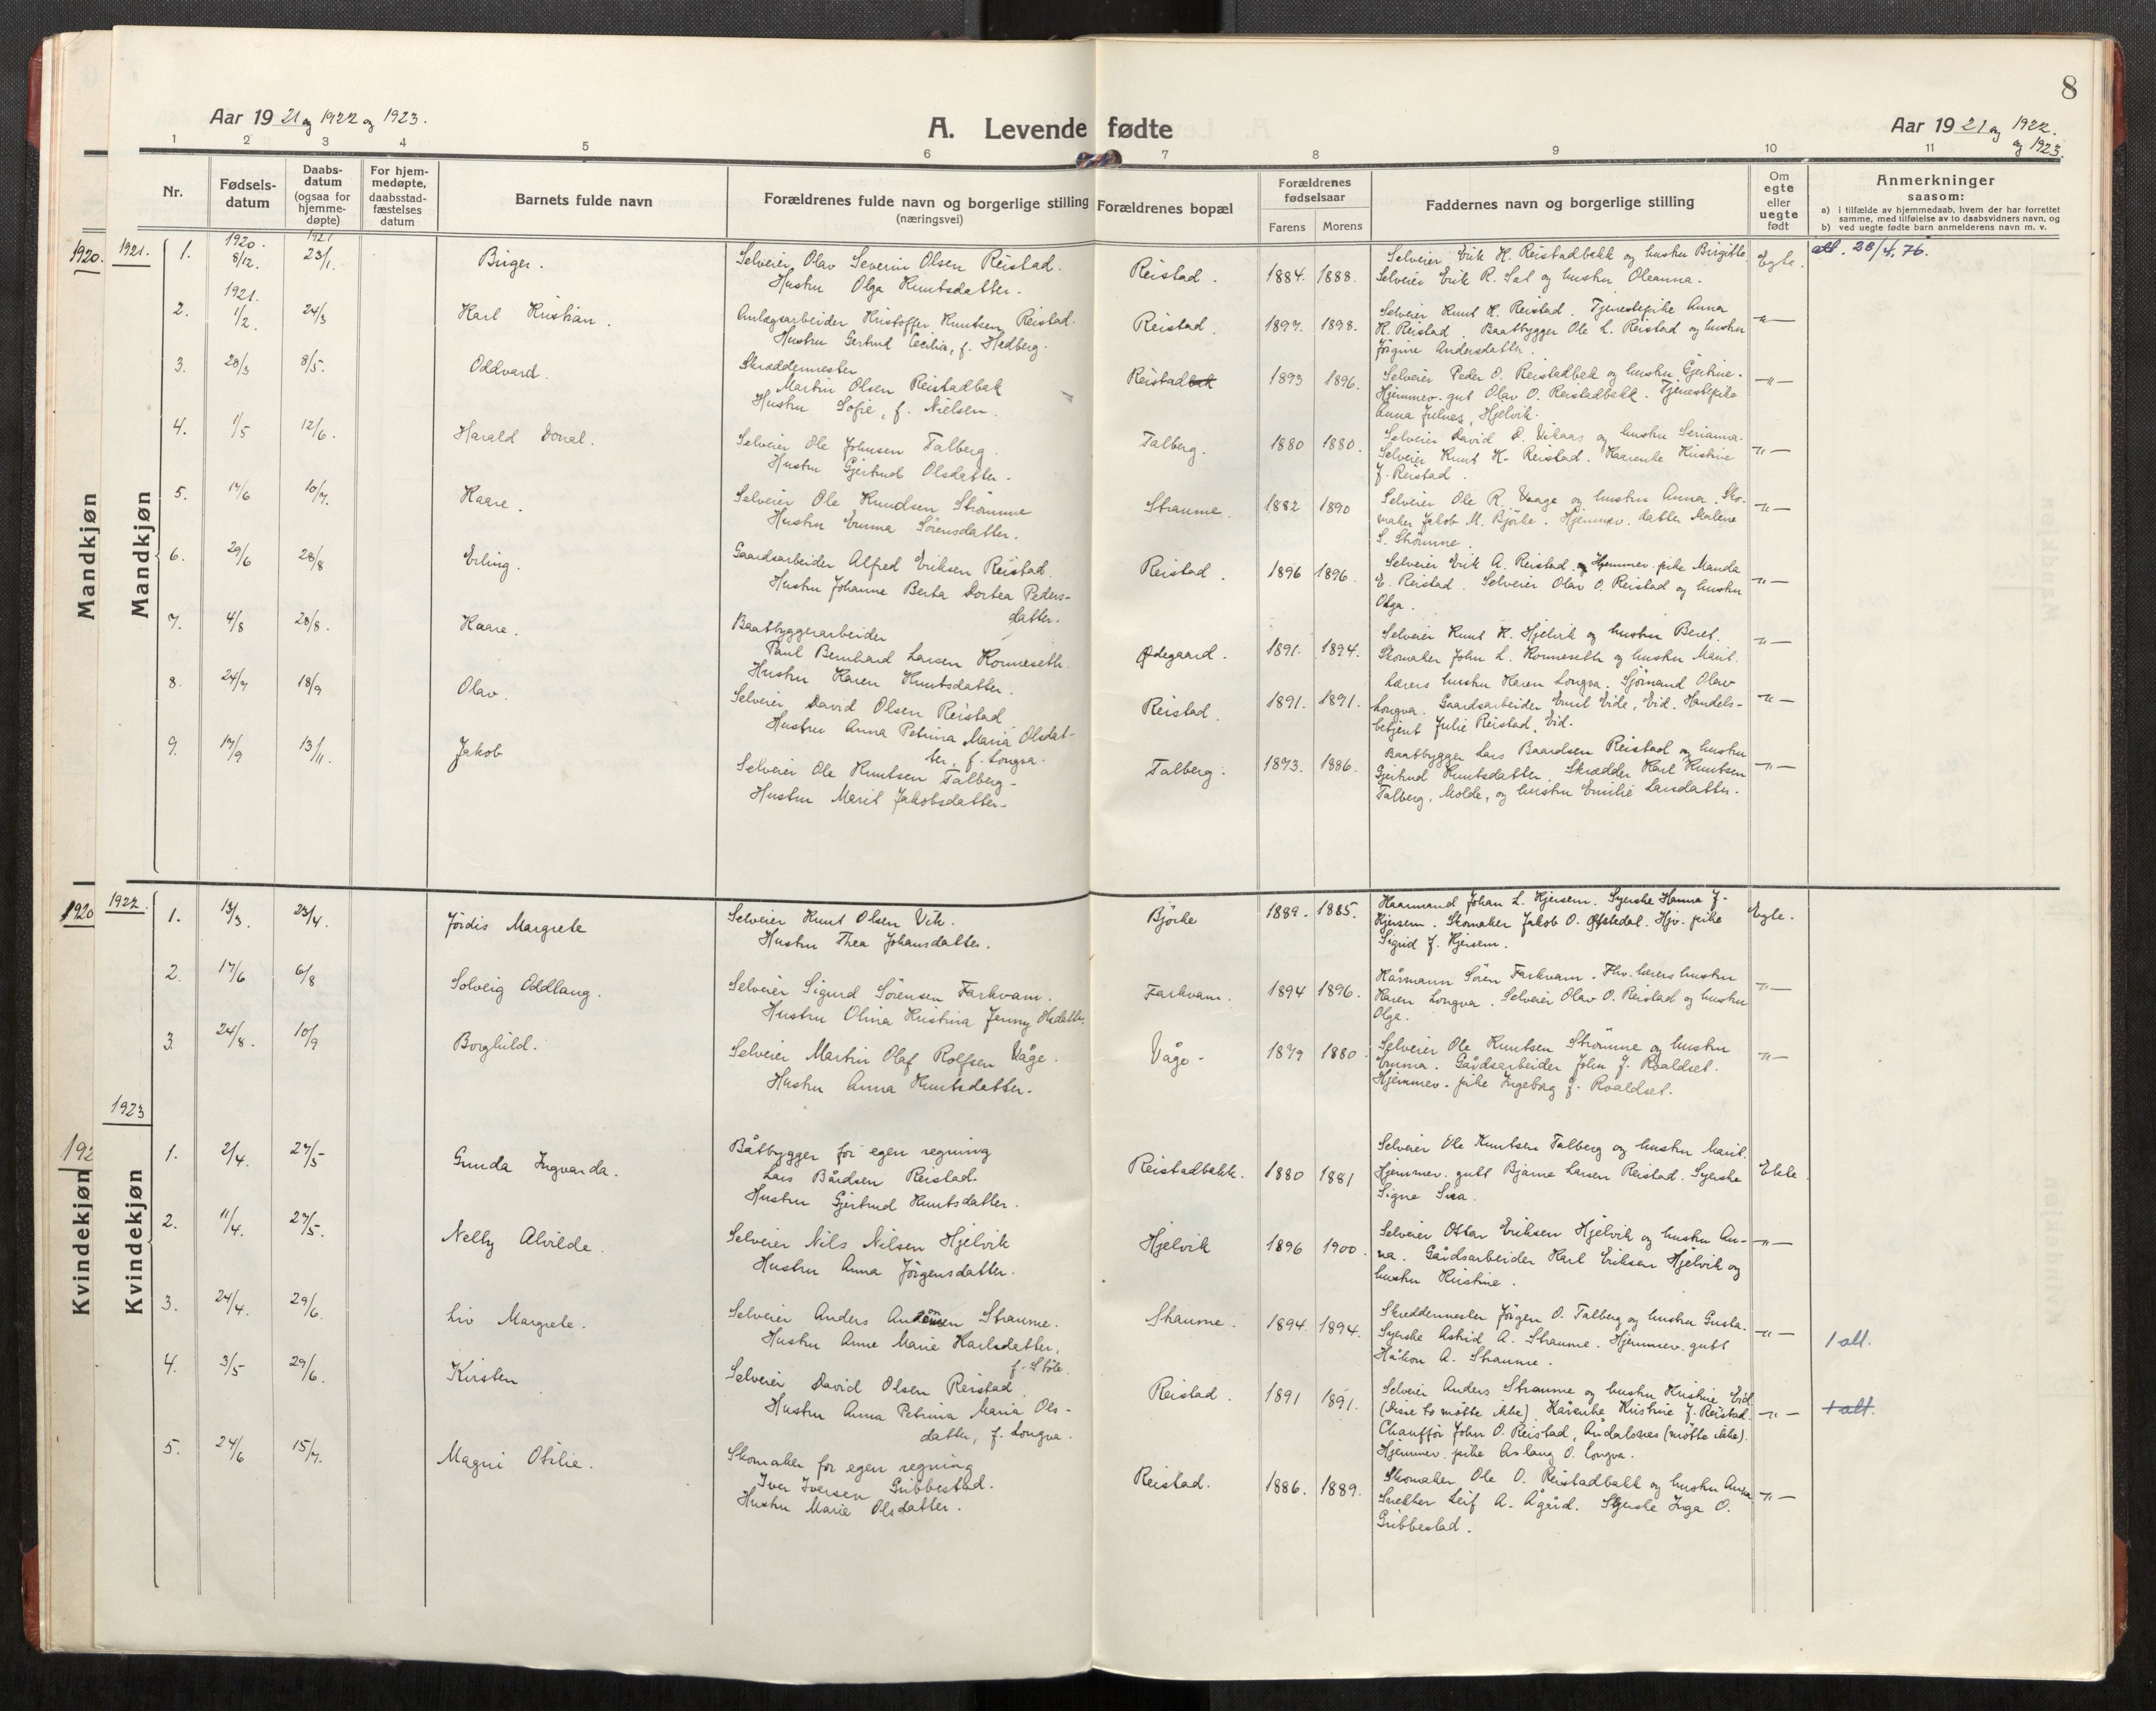 8
Aar 19 21 og 1922 og 1923.
A. Levende fødte
Aar 19 21 og 1922. og 1923.
1 2 3 4 5 6 7 8 9 10 11
Nr.
Fødsels-datum
Daabs-datum (ogsaa for hjemme-døpte)
For hjem-medøpte, daabsstad-fæstelses datum
Barnets fulde navn
Forældrenes fulde navn og borgerlige stilling
(næringsvei)
Forældrenes bopæl
Forældrenes fødselsaar
Farens Morens
Faddernes navn og borgerlige stilling
Om egte eller uegte født
Anmerkninger
saasom:
a) i tilfælde av hjemmedaab, hvem der har forrettet samme, med tilføielse av to daabsvidners navn, og
b) ved uegte fødte barn anmelderens navn m. v.
1920.
1921.
Mandkjøn
Mandkjøn
1. 1920. 8/12. 1921 23/1. Birger.
Selveier Olav Severin Olsen Reistad.
Hustru Olga Knutsdatter.
Reistad. 1884. 1888.
Selveier Erik K. Reistadbakk og hustru Birgitte.
Selveier Erik R. Sæl og hustru Oleanna.
Egte. att. 28/4.76.
2. 1921. 1/2. 24/3 Karl Kristian.
Anlægsarbeider Kristoffer Knutsen Reistad.
Hustru Gertrud Cecilia, f. Hedberg.
Reistad. 1897. 1898.
Selveier Knut K. Reistad. Tjenestepike Anna
K. Reistad. Baatbygger Ole L. Reistad og hustru
Jørgine Andersdatter.
-"-
3. 28/3 8/5. Oddvard.
Skræddermester
Martin Olsen Reistadbak
Hustru Sofie, f. Nielsen.
Reistadbak 1893 1896.
Selveier Peder O. Reistadbakk og hustru Gjertine.
Hjemmev. gut Olav O. Reistadbakk. Tjenestepike
Anna Julnes, Hjelvik.
-"-
4. 1/5 12/6. Harald Donal.
Selveier Ole Johnsen Talberg.
Hustru Gjertrud Olsdatter.
Talberg. 1880 1880.
Selveier David D. Vikaas og hustru Serianna.
Selveier Knut K. Reistad. Kaarenke Kristine
J. Reistad.
-"-
5. 17/6 10/7. Kaare.
Selveier Ole Knudsen Strømme
Hustru Emma Sörensdatter.
Straume. 1882 1890
Selveier Ole R. Vaage og hustru Anna. Sko-
maker Jakob M. Björke. Hjemmev. datter Marlene
S. Strömme.
-"-
6. 29/6 28/8 Erling.
Gaardsarbeider Alfred Eriksen Reistad.
Hustru Johanne Berta Dortea Peders-
datter.
Reistad. 1896 1896.
Selveier Erik A. Reistad. Hjemmev. pike Manda
E. Reistad. Selveier Olav O. Reistad og hustru
Olga.
-"-
7. 4/8 28/8. Kaare.
Baatbyggerarbeider
Paul Bernhard Larsen Konneseth.
Hustru Karen Knutsdatter.
Ødegaard. 1891. 1894.
Selveier Knut K. Hjelvik og hustru Beret.
Skomaker John L. Konneseth og hustru Marit.
-"-
8. 24/7 18/9 Olav.
Selveier David Olsen Reistad
Hustru Anna Petrina Maria Olsdat-
ter, f. Longva.
Reistad. 1891. 1891.
Lærers hustru Karen Longva. Sjømand Olav
Longva. Gaardsarbeider Emil Eide, Eid. Handels-
betjent Julie Reistad, Eid.
-"-
9. 17/9 13/11. Jakob
Selveier Ole Knutsen Talberg.
Hustru Marit Jakobsdatter.
Talberg. 1873. 1886.
Baatbygger Lars Baardsen Reistad og hustru
Gjertrud Knutsdatter. Skrædder Karl Knutsen
Talberg, Molde, og hustru Emilie Larsdatter.
-"-
1920
1922.
1. 13/3. 23/4. Jördis Margrete
Selveier Knut Olsen Vik.
Hustru Thea Johansdatter.
Björke 1889. 1885.
Kaarmand Johan L. Kjersem. Syerske Hanna J.
Kjersem. Skomaker Jakob O. Øfstedal. Hjv. pike
Sigrid J. Kjersem.
Egte.
2. 17/6 6/8 Solveig Oddlaug.
Selveier Sigurd Sörensen Farkvam.
Hustru Olina Kristina Jenny Olsdatter.
Farkvam. 1894 1896.
Kårmann Sören Farkvam. Fhv. lærers hustru
Karen Longva. Selveier Olav O. Reistad og hustru
Olga.
-"-
3. 24/8. 10/9 Borghild.
Selveier Martin Olaf Rolfsen Våge.
Hustru Anna Knutsdatter.
Våge. 1879 1880
Selveier Ole Knutsen Strömme og hustru
Emma. Gårdsarbeider John J. Roaldset.
Hjemmev. pike Ingeborg J. Roaldset.
-"-
1923
192
Kvindekjøn
Kvindekjøn
1. 2/4. 27/5 Gunda Ingvarda.
Båtbygger for egen regning
Lars Bårdsen Reistad.
Hustru Gjertrud Knutsdatter.
Reistadbakk. 1880 1881
Selveier Ole Knutsen Talberg og hustru Marit.
Hjemmev. gutt Bjarne Larsen Reistad. Syerske
Signe Susa.
Ekte.
2. 11/4. 27/5. Nelly Alvilde.
Selveier Nils Nilsen Hjelvik
Hustru Anna Jörgensdatter.
Hjelvik 1896 1900.
Selveier Ottar Eriksen Hjelvik og hustru An-
na. Gårdsarbeider Karl Eriksen Hjelvik og
hustru Kristine.
-"-
3. 24/4. 29/6. Liv Margrete.
Selveier Anders Andersen Straume.
Hustru Anne Marie Karlsdatter,
f. Stöle.
Straume. 1894. 1894.
Skreddermester Jörgen O. Talberg og hustru Gusta.
Syerske Astrid A. Straume. Hjemmev. gutt
Håkon A. Straume.
-"- 1 att.
4. 3/5 29/6. Kirsten
Selveier David Olsen Reistad.
Hustru Anna Petrina Maria Ols-
datter, f. Longva.
Reistad. 1891 1891.
Selveier Anders Straume og hustru Kristine, Eid
(disse to møtte ikke). Kårenke Kristine J. Reistad.
Chauffør John O. Reistad, Åndalsnes (møtte ikke).
Hjemmev. pike Aslaug O. Longva.
-"- 1 att.
5. 24/6 15/7. Magni Otilie.
Skomaker for egen regning
Iver Iversen Gribbestad.
Hustru Marie Olsdatter.
Reistad. 1886. 1889.
Skomaker Ole O. Reistadbakk og hustru Anna
Snekker Leif A. Ågård. Syerske Inga O.
Gribbestad.
-"-